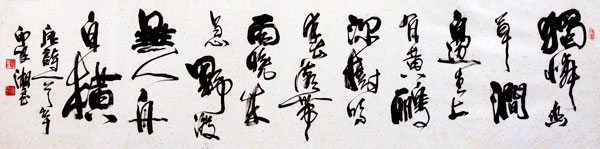 獨憐幽
草澗
邊生上
有黃鸝
深樹鳴
春潮帶
雨晚來
急野渡
無人舟
自橫
唐詩一